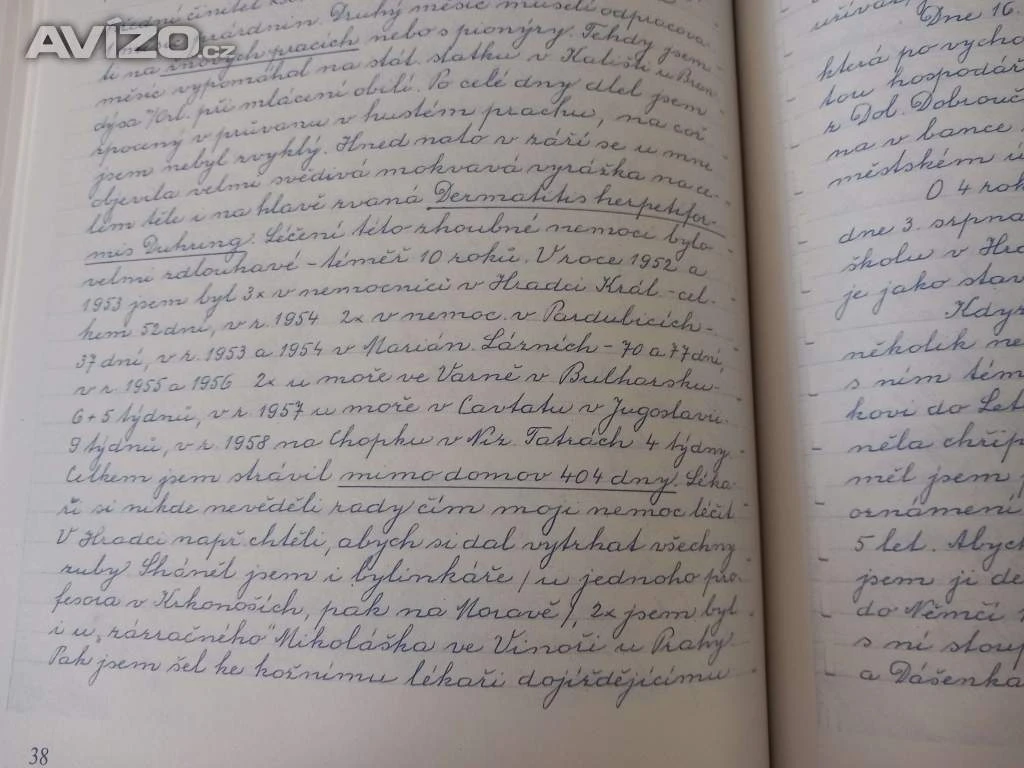 AVÍZO.cz
řídní činitel
prázdnin. Druhý měsíc museli odpracova-
ti na žňových pracích nebo s pionýry. Tehdy jsem
měsíc vypomáhal na stát. statku v Kališti u Bran-
dýsa n/Orl. při mlácení obilí. Po celé dny dlel jsem
zpocený v průvanu v hustém prachu, na což
jsem nebyl zvyklý. Ihned nato v září se u mne
objevila velmi svědivá mokvavá vyrážka na ce-
lém těle i na hlavě zvaná Dermatitis herpetifor-
mis Duhring. Léčení této zhoubné nemoci bylo
velmi zdlouhavé - téměř 10 roků. V roce 1952 a
1953 jsem byl 3x v nemocnici v Hradci Král - cel-
kem 52 dní, v r. 1954 2x v nemoc. v Pardubicích -
37 dní, v r. 1953 a 1954 v Marián. Lázních - 70 a 77 dní,
v r. 1955 a 1956 2x u moře ve Varně v Bulharsku -
6 + 5 týdnů, v r. 1957 u moře v Cavtatu v Jugoslavii
9 týdnů, v r. 1958 na Chopku v Níz. Tatrách 4 týdny.
Celkem jsem strávil mimo domov 404 dny. Léka-
ři si nikde nevěděli rady čím moji nemoc léčit
V Hradci např. chtěli, abych si dal vytrhat všechny
zuby. Sháněl jsem i bylinkáře / u jednoho pro-
fesora v Krkonoších, pak na Moravě /, 2x jsem byl
i u „zázračného" Mikoláška ve Vinoři u Prahy.
Pak jsem šel ke kožnímu lékaři dojíždějícímu
38
Dne 16.
která po vycho
tou hospodář
z Dol. Dobrouč
na v bance.
městském ú
O 4 rok
dne 3. srpna
školu v Hra
je jako stav
Když
několik ne
s ním tém
kovi do Let
něla chřip
měl jsem
oznámení
5 let. Abych
jsem ji de
do Němčí
s ní stoup
a Dášenka